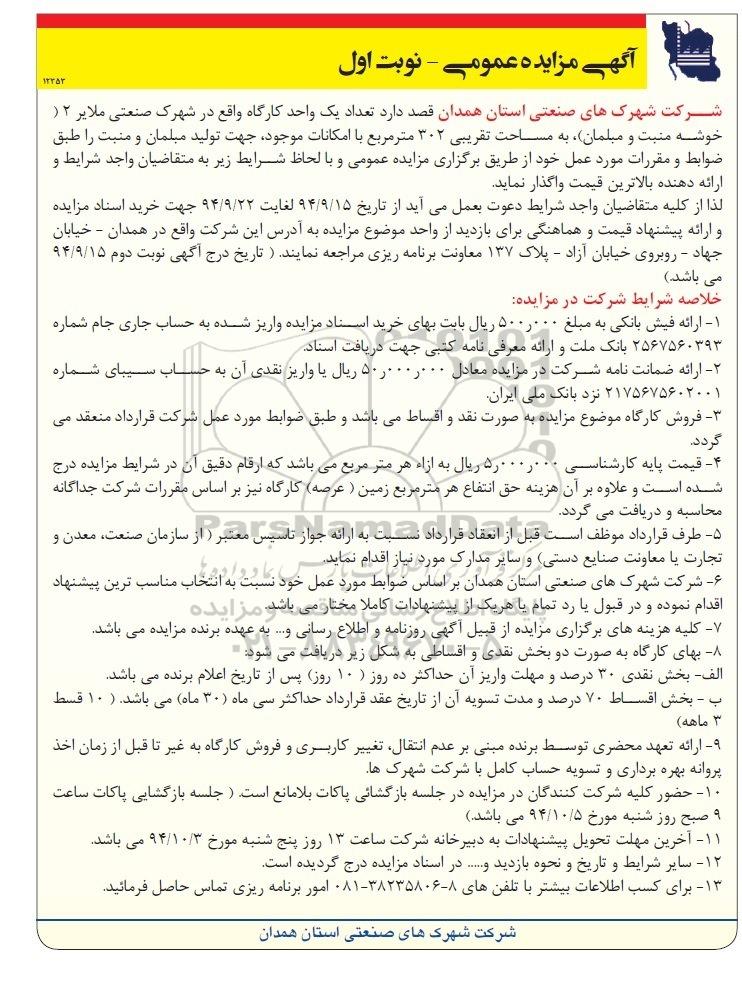 آگهی مزایده عمومی - نوبت اول
۱۲۳۵۳
شرکت شهرک های صنعتی استان همدان قصد دارد تعداد یک واحد کارگاه واقع در شهرک صنعتی ملایر ۲ (
خوشه منبت و مبلمان)، به مساحت تقریبی ۳۰۲ مترمربع با امکانات موجود، جهت تولید مبلمان و منبت را طبق
ضوابط و مقررات مورد عمل خود از طریق برگزاری مزایده عمومی و با لحاظ شرایط زیر به متقاضیان واجد شرایط و
ارائه دهنده بالاترین قیمت واگذار نماید.
لذا از کلیه متقاضیان واجد شرایط دعوت بعمل می آید از تاریخ ۹۴/۹/۱۵ لغایت ۹۴/۹/۲۲ جهت خرید اسناد مزایده
و ارائه پیشنهاد قیمت و هماهنگی برای بازدید از واحد موضوع مزایده به آدرس این شرکت واقع در همدان - خیابان
جهاد - روبروی خیابان آزاد - پلاک ۱۳۷ معاونت برنامه ریزی مراجعه نمایند. ( تاریخ درج آگهی نوبت دوم ۹۴/۹/۱۵
می باشد.)
خلاصه شرایط شرکت در مزایده:
۱- ارائه فیش بانکی به مبلغ ۵۰۰٫۰۰۰ ریال بابت بهای خرید اسناد مزایده واریز شده به حساب جاری جام شماره
۲۵۶۷۵۶۰۳۹۳ بانک ملت و ارائه معرفی نامه کتبی جهت دریافت اسناد.
۲- ارائه ضمانت نامه شرکت در مزایده معادل ۵۰٫۰۰۰٫۰۰۰ ریال یا واریز نقدی آن به حساب سیبای شماره
۲۱۷۵۶۷۵۶۰۲۰۰۱ نزد بانک ملی ایران.
۳- فروش کارگاه موضوع مزایده به صورت نقد و اقساط می باشد و طبق ضوابط مورد عمل شرکت قرارداد منعقد می
گردد.
۴- قیمت پایه کارشناسی ۵٫۰۰۰٫۰۰۰ ریال به ازاء هر متر مربع می باشد که ارقام دقیق آن در شرایط مزایده درج
شده است و علاوه بر آن هزینه حق انتفاع هر مترمربع زمین ( عرصه) کارگاه نیز بر اساس مقررات شرکت جداگانه
محاسبه و دریافت می گردد.
ParsNamadData
۵- طرف قرارداد موظف است قبل از انعقاد قرارداد نسبت به ارائه جواز تاسیس معتبر ( از سازمان صنعت، معدن و
تجارت یا معاونت صنایع دستی) و سایر مدارک مورد نیاز اقدام نماید.
۶- شرکت شهرک های صنعتی استان همدان بر اساس ضوابط مورد عمل خود نسبت به انتخاب مناسب ترین پیشنهاد
اقدام نموده و در قبول یا رد تمام یا هریک از پیشنهادات کاملا مختار می باشد.
۷- کلیه هزینه های برگزاری مزایده از قبیل آگهی روزنامه و اطلاع رسانی و... به عهده برنده مزایده می باشد.
۸- بهای کارگاه به صورت دو بخش نقدی و اقساطی به شکل زیر دریافت می شود:
الف- بخش نقدی ۳۰ درصد و مهلت واریز آن حداکثر ده روز ( ۱۰ روز) پس از تاریخ اعلام برنده می باشد.
ب - بخش اقساط ۷۰ درصد و مدت تسویه آن از تاریخ عقد قرارداد حداکثر سی ماه (۳۰ ماه) می باشد. ( ۱۰ قسط
۳ ماهه)
۹- ارائه تعهد محضری توسط برنده مبنی بر عدم انتقال، تغییر کاربری و فروش کارگاه به غیر تا قبل از زمان اخذ
پروانه بهره برداری و تسویه حساب کامل با شرکت شهرک ها.
۱۰- حضور کلیه شرکت کنندگان در مزایده در جلسه بازگشائی پاکات بلامانع است. ( جلسه بازگشایی پاکات ساعت
۹ صبح روز شنبه مورخ ۹۴/۱۰/۵ می باشد.)
۱۱- آخرین مهلت تحویل پیشنهادات به دبیرخانه شرکت ساعت ۱۳ روز پنج شنبه مورخ ۹۴/۱۰/۳ می باشد.
۱۲- سایر شرایط و تاریخ و نحوه بازدید و..... در اسناد مزایده درج گردیده است.
۱۳- برای کسب اطلاعات بیشتر با تلفن های ۸-۳۸۲۳۵۸۰۶-۰۸۱ امور برنامه ریزی تماس حاصل فرمائید.
شرکت شهرک های صنعتی استان همدان